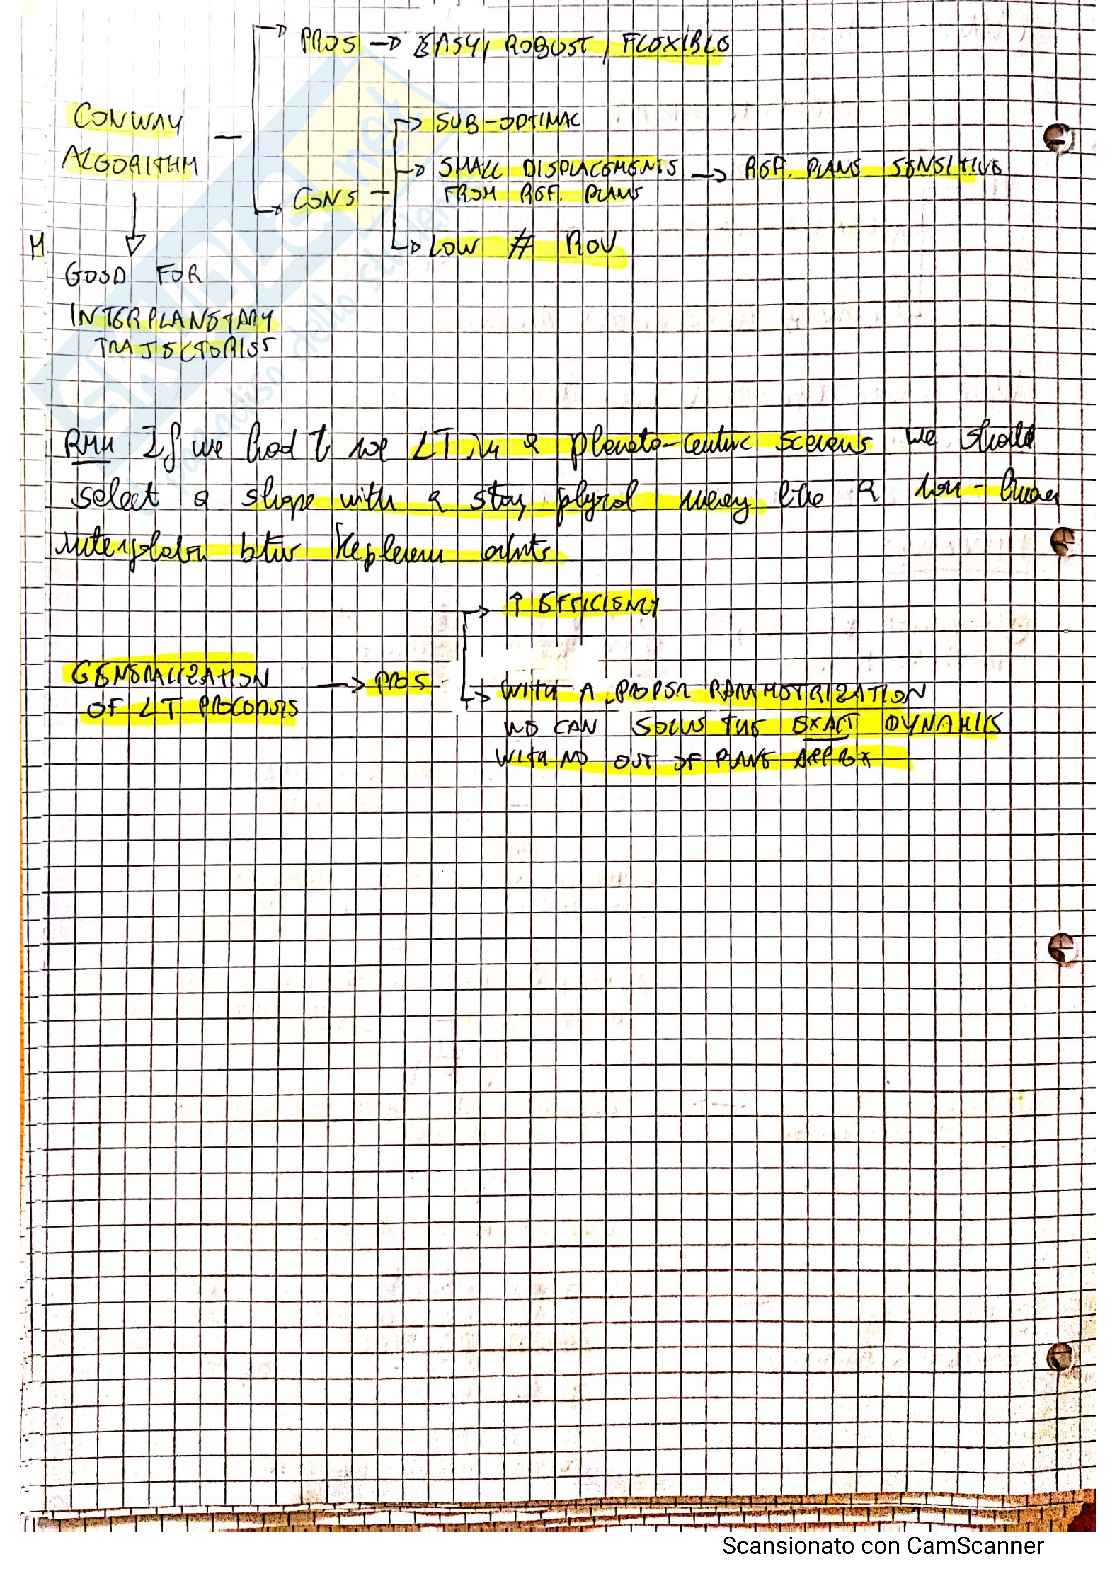 PROS → EASY, ROBUST, FLEXIBLE
CONWAY
ALGORITHM
CONS
SUB-OPTIMAL
SMALL DISPLACEMENTS → REF. PLANE SENSITIVE
FROM REF. PLANE
LOW # ROV
GOOD FOR
INTERPLANETARY
TRAJECTORIES
RMK If we had to use LT in a planeto-centric scenario we should
select a shape with a strong physical meaning like a non-linear
interpolation btw Keplerian orbits
GENERALIZATION
OF LT PROCEDURES
→ PROS
↑ EFFICIENCY
WITH A PROPER PARAMETRIZATION
WE CAN SOLVE THE EXACT DYNAMICS
WITH NO OUT OF PLANE APPROX
Scansionato con CamScanner